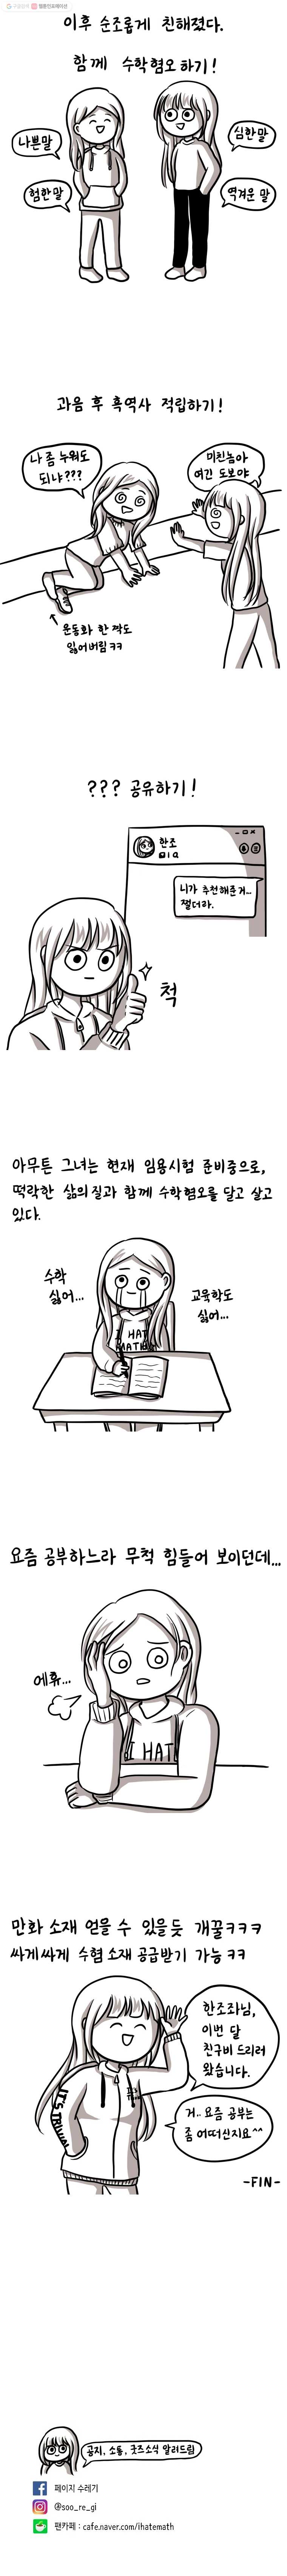 이후 순조롭게 친해졌다.
함께 수학혐오하기!
나쁜말
심한말
험한말
역겨운 말
과음 후 흑역사 적립하기!
나 좀 누워도
되냐???
미친놈아
여긴 도보야
운동화 한 짝도
잃어버림ㅋㅋ
??? 공유하기!
한조
니가 추천해준거...
쩔더라.
척
아무튼 그녀는 현재 임용시험 준비중으로,
떡락한 삶의 질과 함께 수학혐오를 달고 살고
있다.
수학
싫어...
교육학도
싫어...
I HAT
MATH
요즘 공부하느라 무척 힘들어 보이던데...
에휴...
I HAT
만화 소재 얻을 수 있을듯 개꿀ㅋㅋㅋ
싸게싸게 수혐 소재 공급받기 가능 ㅋㅋ
한조좌님,
이번 달
친구비 드리러
왔습니다.
거.. 요즘 공부는
좀 어떠신지요^^
-FIN-
공지, 소통, 굿즈소식 알려드림
페이지 수레기
@soo_re_gi
팬카페 : cafe.naver.com/ihatemath